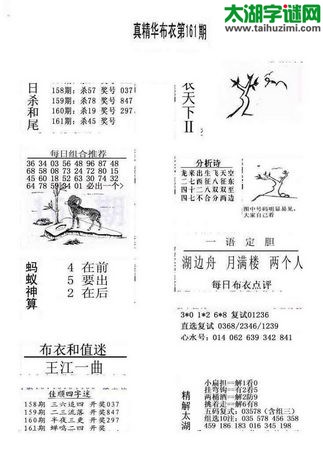 太湖字谜网
www.taihuzimi.com
真精华布衣第161期
日杀和尾
158期: 杀57 奖号 037
159期: 杀78 奖号 847
160期: 杀19 奖号 297
161期: 杀45 奖号
每日组合推荐
36 34 03 56 48 96 87 48
68 16 20 35 98 15 71 90
10 08 18 52 63 74 30 24
64 78 59 34 01 必出一个>
蚂蚁神算
4 在 前
5 要 出
2 在 后
布衣和值迷
王江一曲
佳顺四字迷
158期 三六巡四 开奖037
159期 二三流落 开奖847
160期 半夜三更 开奖297
161期 蝉鸣二四 开奖
衣天下II
分析诗
龙来出生飞天空
二七两西征在东
四十二八双双至
四七不合分两边
图中号码明显易见,
大家自己看
一语定胆
湖边舟 月满楼 两个人
每日布衣点评
3*0 1*2 6*8 复试01236
直选复试 0368/2346/1239
心水号: 014 062 639 342 841
精解太湖
小扁担一解1看0
挂弯钩一解2看5
两桶酒一解2防9
挑着走一解6看8
五码复式: 03578 (含组三)
组选10注: 035 578 456 358
459 186 183 016 345 198